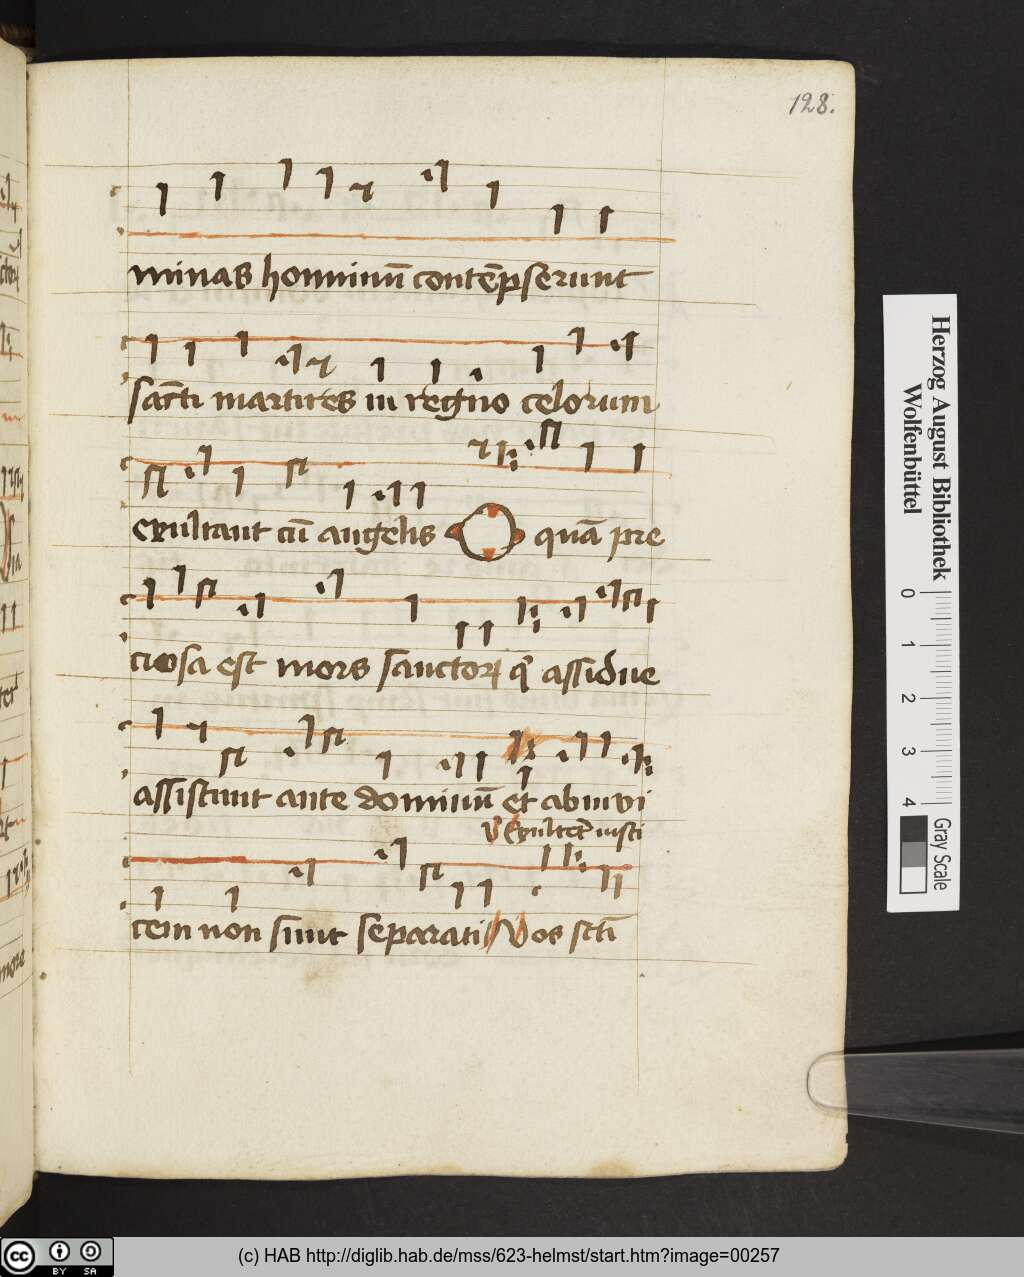 128.
minas hominū contēpserunt
sācti martires in regno celorum
exultant cū angelis O quā pre
ciosa est mors sanctorꝝ qͥ assidue
assistunt ante dominū et abinvi
V̓ Exultēt iusti
cem non sunt separati Vos scti̅
Herzog August Bibliothek
Wolfenbüttel
0 1 2 3 4
Gray Scale
cc BY SA
(c) HAB http://diglib.hab.de/mss/623-helmst/start.htm?image=00257